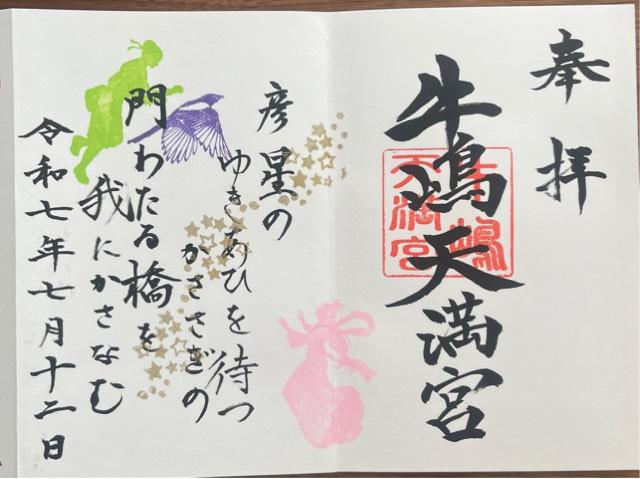 奉拝
牛嶋天満宮
牛嶋
天満宮
彦星の
ゆきあひを待つ
かささぎの
門わたる橋を
我にかさなむ
令和七年七月十二日